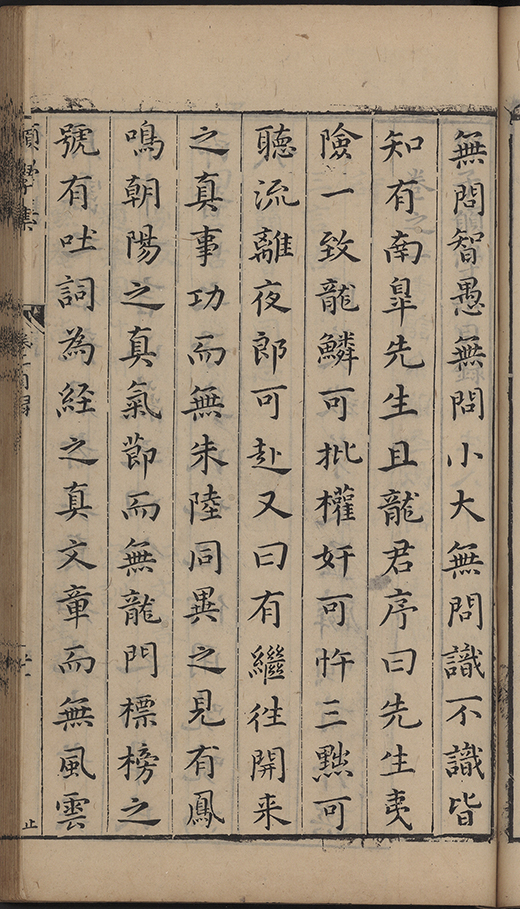 無問智愚無問小大無問識不識皆
知有南臯先生且龍君序曰先生夷
險一致龍鱗可批權奸可忤三黜可
聽流離夜郎可赴又曰有繼往開来
之真事功而無朱陸同異之見有鳳
鳴朝陽之真氣莭而無龍門標榜之
號有吐詞為経之真文章而無風雲
願學集
止